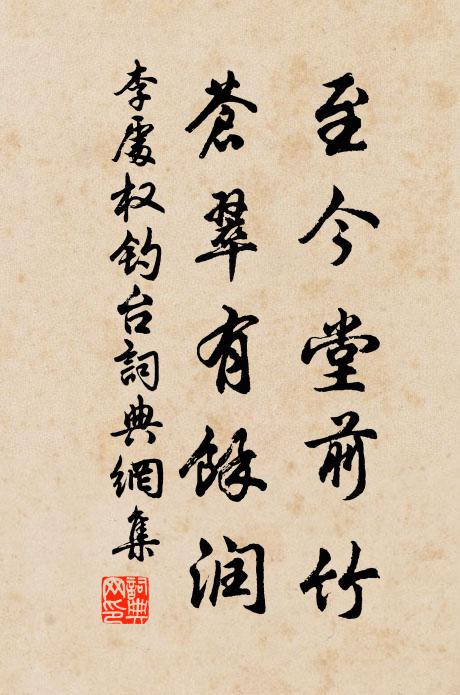 至今堂前竹
蒼翠有餘润
李處权钓台詞典網集
詞典网印